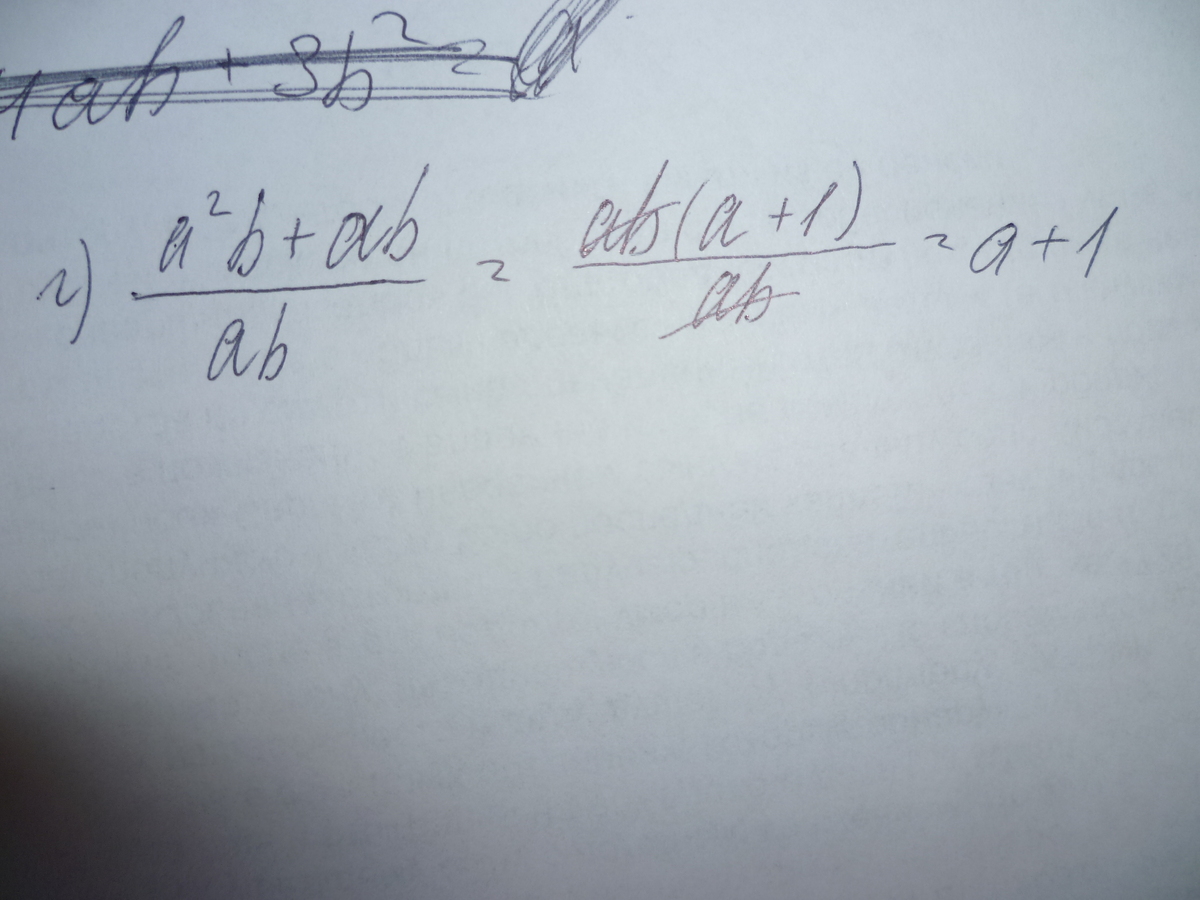 4ab + 3b² = a
г) (a²b + ab)/(ab) = (ab(a + 1))/(ab) = a + 1